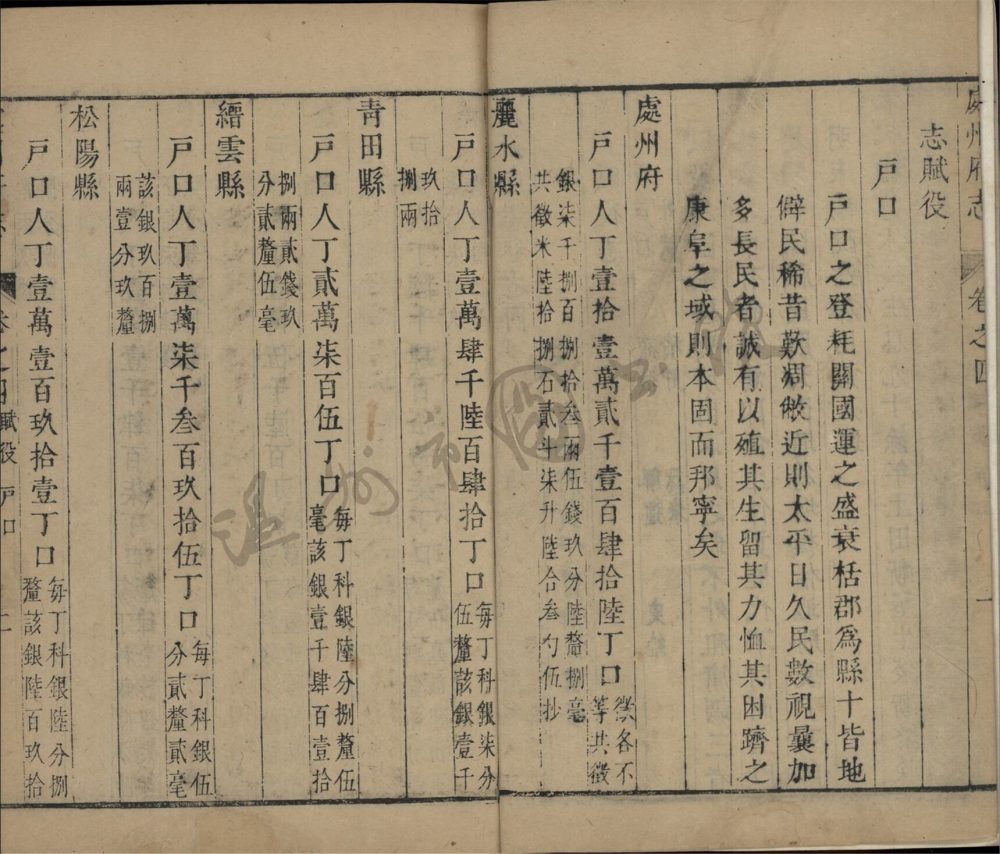 處州府志 卷之四 一
志賦役
戶口
戶口之登耗關國運之盛衰栝郡爲縣十皆地
僻民稀昔歎凋敝近則太平日久民數視曩加
多長民者誠有以殖其生留其力恤其困躋之
康阜之域則本固而邦寧矣
處州府
戶口人丁壹拾壹萬貳千壹百肆拾陸丁口
科各不
等共徵
銀柒千捌百捌拾叁兩伍錢玖分陸釐捌毫
共徵米陸拾捌石貳斗柒升陸合叁勺伍抄
麗水縣
戶口人丁壹萬肆千陸百肆拾丁口
每丁科銀柒分
伍釐該銀壹千
玖拾
捌兩
青田縣
戶口人丁貳萬柒百伍丁口
每丁科銀陸分捌釐伍
毫該銀壹千肆百壹拾
捌兩貳錢玖
分貳釐伍毫
縉雲縣
戶口人丁壹萬柒千叁百玖拾伍丁口
每丁科銀伍
分貳釐貳毫
該銀玖百捌
兩壹分玖釐
松陽縣
戶口人丁壹萬壹百玖拾壹丁口
每丁科銀陸分捌
釐該銀陸百玖拾
卷之四 賦役 戶口 二
温州市圖書館